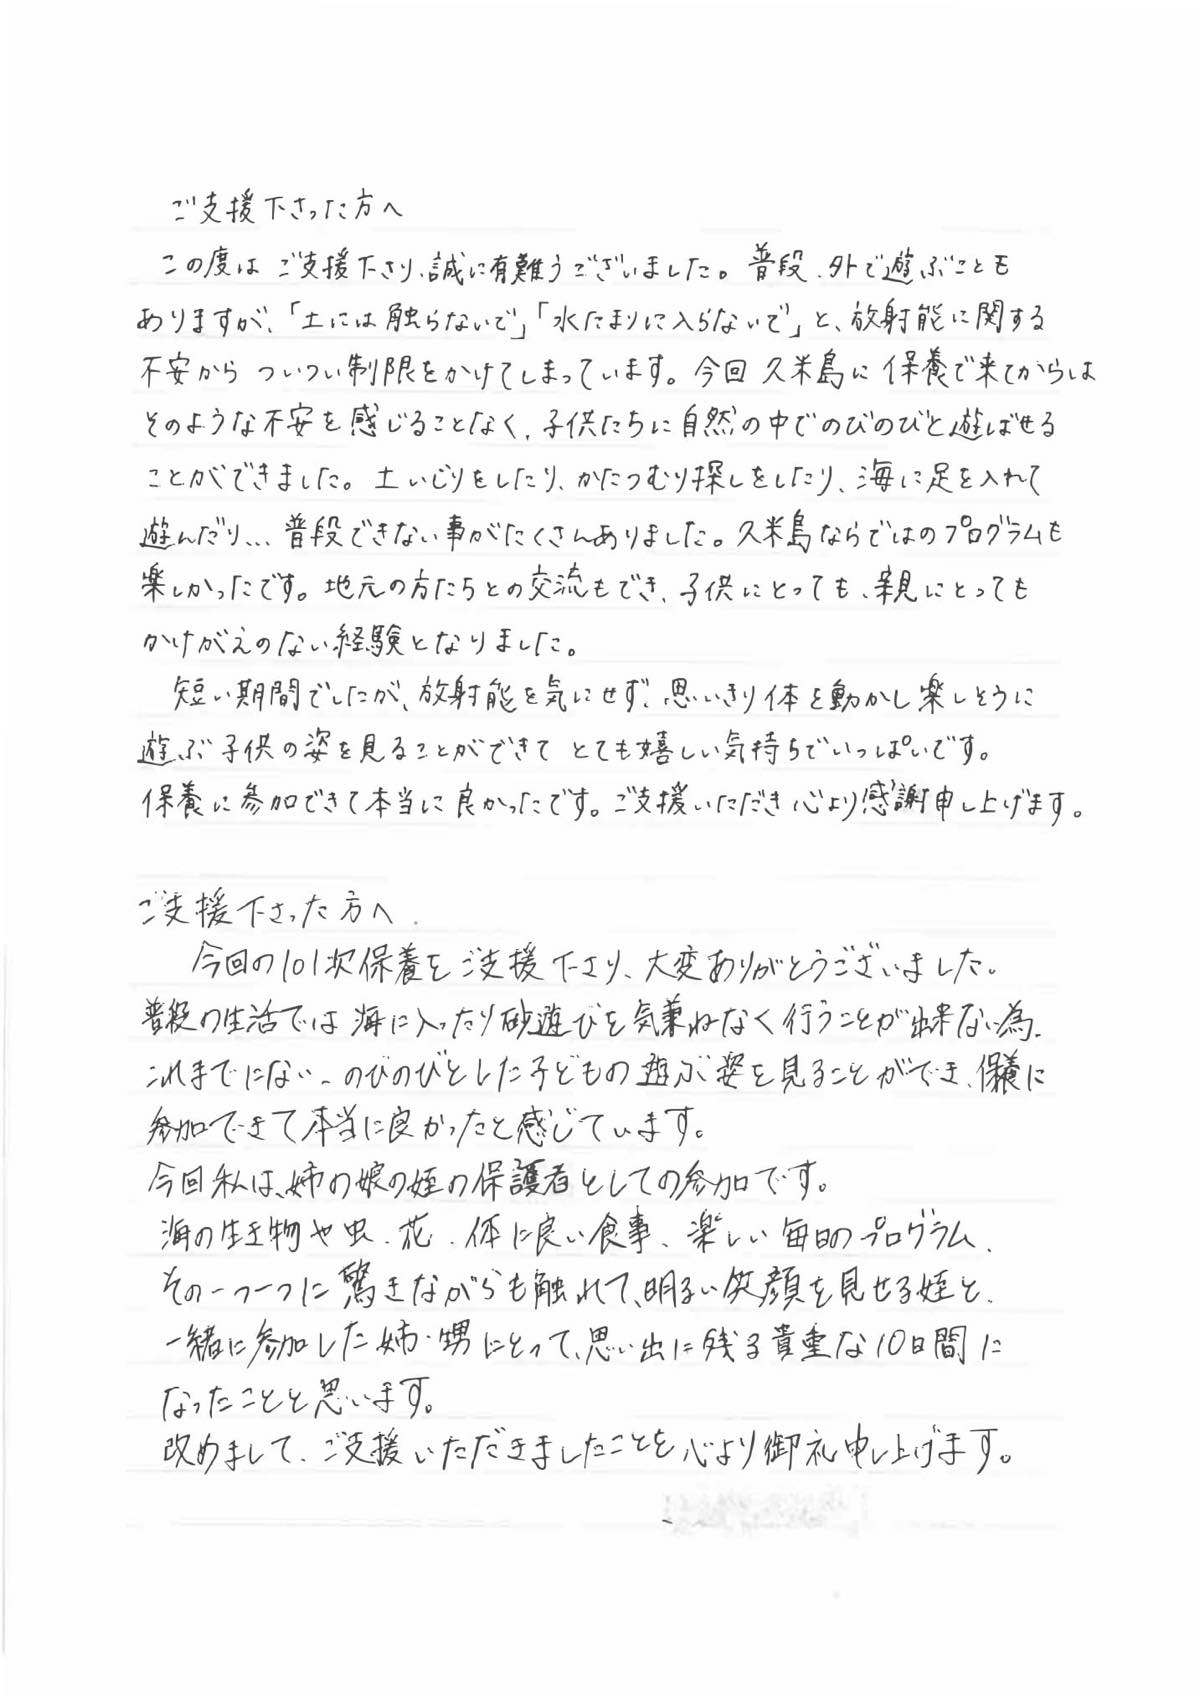 ご支援下さった方へ
この度は ご支援下さり、誠に有難うございました。普段、外で遊ぶことも
ありますが、「土には触らないで」「水たまりに入らないで」と、放射能に関する
不安から ついつい制限をかけてしまっています。今回 久米島に 保養で来てからは
そのような不安を感じることなく、子供たちに自然の中でのびのびと遊ばせる
ことができました。土いじりをしたり、かたつむり探しをしたり、海に足を入れて
遊んだり... 普段できない事がたくさんありました。久米島ならではのプログラムも
楽しかったです。地元の方たちとの交流もでき、子供にとっても、親にとっても
かけがえのない経験となりました。
短い期間でしたが、放射能を気にせず、思いきり体を動かし楽しそうに
遊ぶ子供の姿を見ることができて とても嬉しい気持ちでいっぱいです。
保養に参加できて本当に良かったです。ご支援いただき心より感謝申し上げます。
ご支援下さった方へ.
今回の101次保養をご支援下さり、大変ありがとうございました。
普段の生活では海に入ったり砂遊びを気兼ねなく行うことが出来ない為、
これまでにない、のびのびとした子どもの遊ぶ姿を見ることができ、保養に
参加できて本当に良かったと感じています。
今回私は、姉の娘の姪の保護者としての参加です。
海の生き物や虫、花、体に良い食事、楽しい毎日のプログラム、
その一つ一つに驚きながらも触れて、明るい笑顔を見せる姪と、
一緒に参加した姉・甥にとって、思い出に残る貴重な10日間に
なったことと思います。
改めまして、ご支援いただきましたことを心より御礼申し上げます。